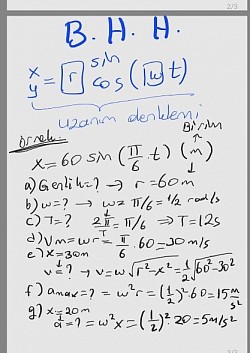 2/3
B. H. H.
x
y = r sin cos (w t)
uzanım denklemi
örnek: Birim
x = 60 sin (π/6 . t) (m)
a) Genlik = ? → r = 60m
b) w = ? → w = π/6 = 1/2 rad/s
c) T = ? 2π/T = π/6 → T = 12s
d) Vm = wr = π/6 . 60 = 30 m/s
e) x = 30m
v = ? → v = w√r²-x² = 1/2 √60²-30²
f) amax = ? = w²r = (1/2)² 60 = 15 m/s²
g) x = 20m
a = ? = w²x = (1/2)². 20 = 5m/s²